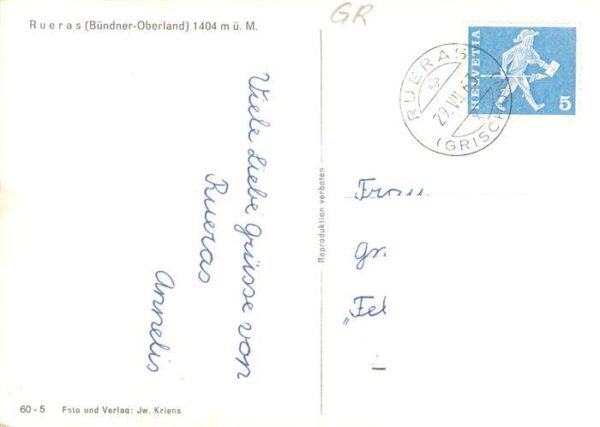 Rueras (Bündner-Oberland) 1404 m ü. M.
GR
HELVETIA
5
RUERAS
29.VII.
(GRISCH
Viele liebe Grüsse von
Rueras
Annelis
Reproduktion verboten
Gr.
60 - 5 Foto und Verlag: Jw. Kriens